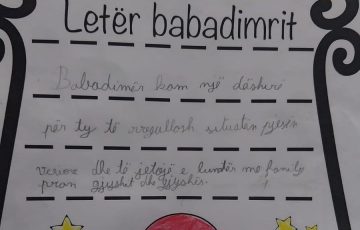 Letër babadimrit
Babadimër kam një dëshirë
për ty të rregallosh situatën pjesën
veriore dhe të jetojë e lumtër me family
pran gjyshit dhe gjyshës.